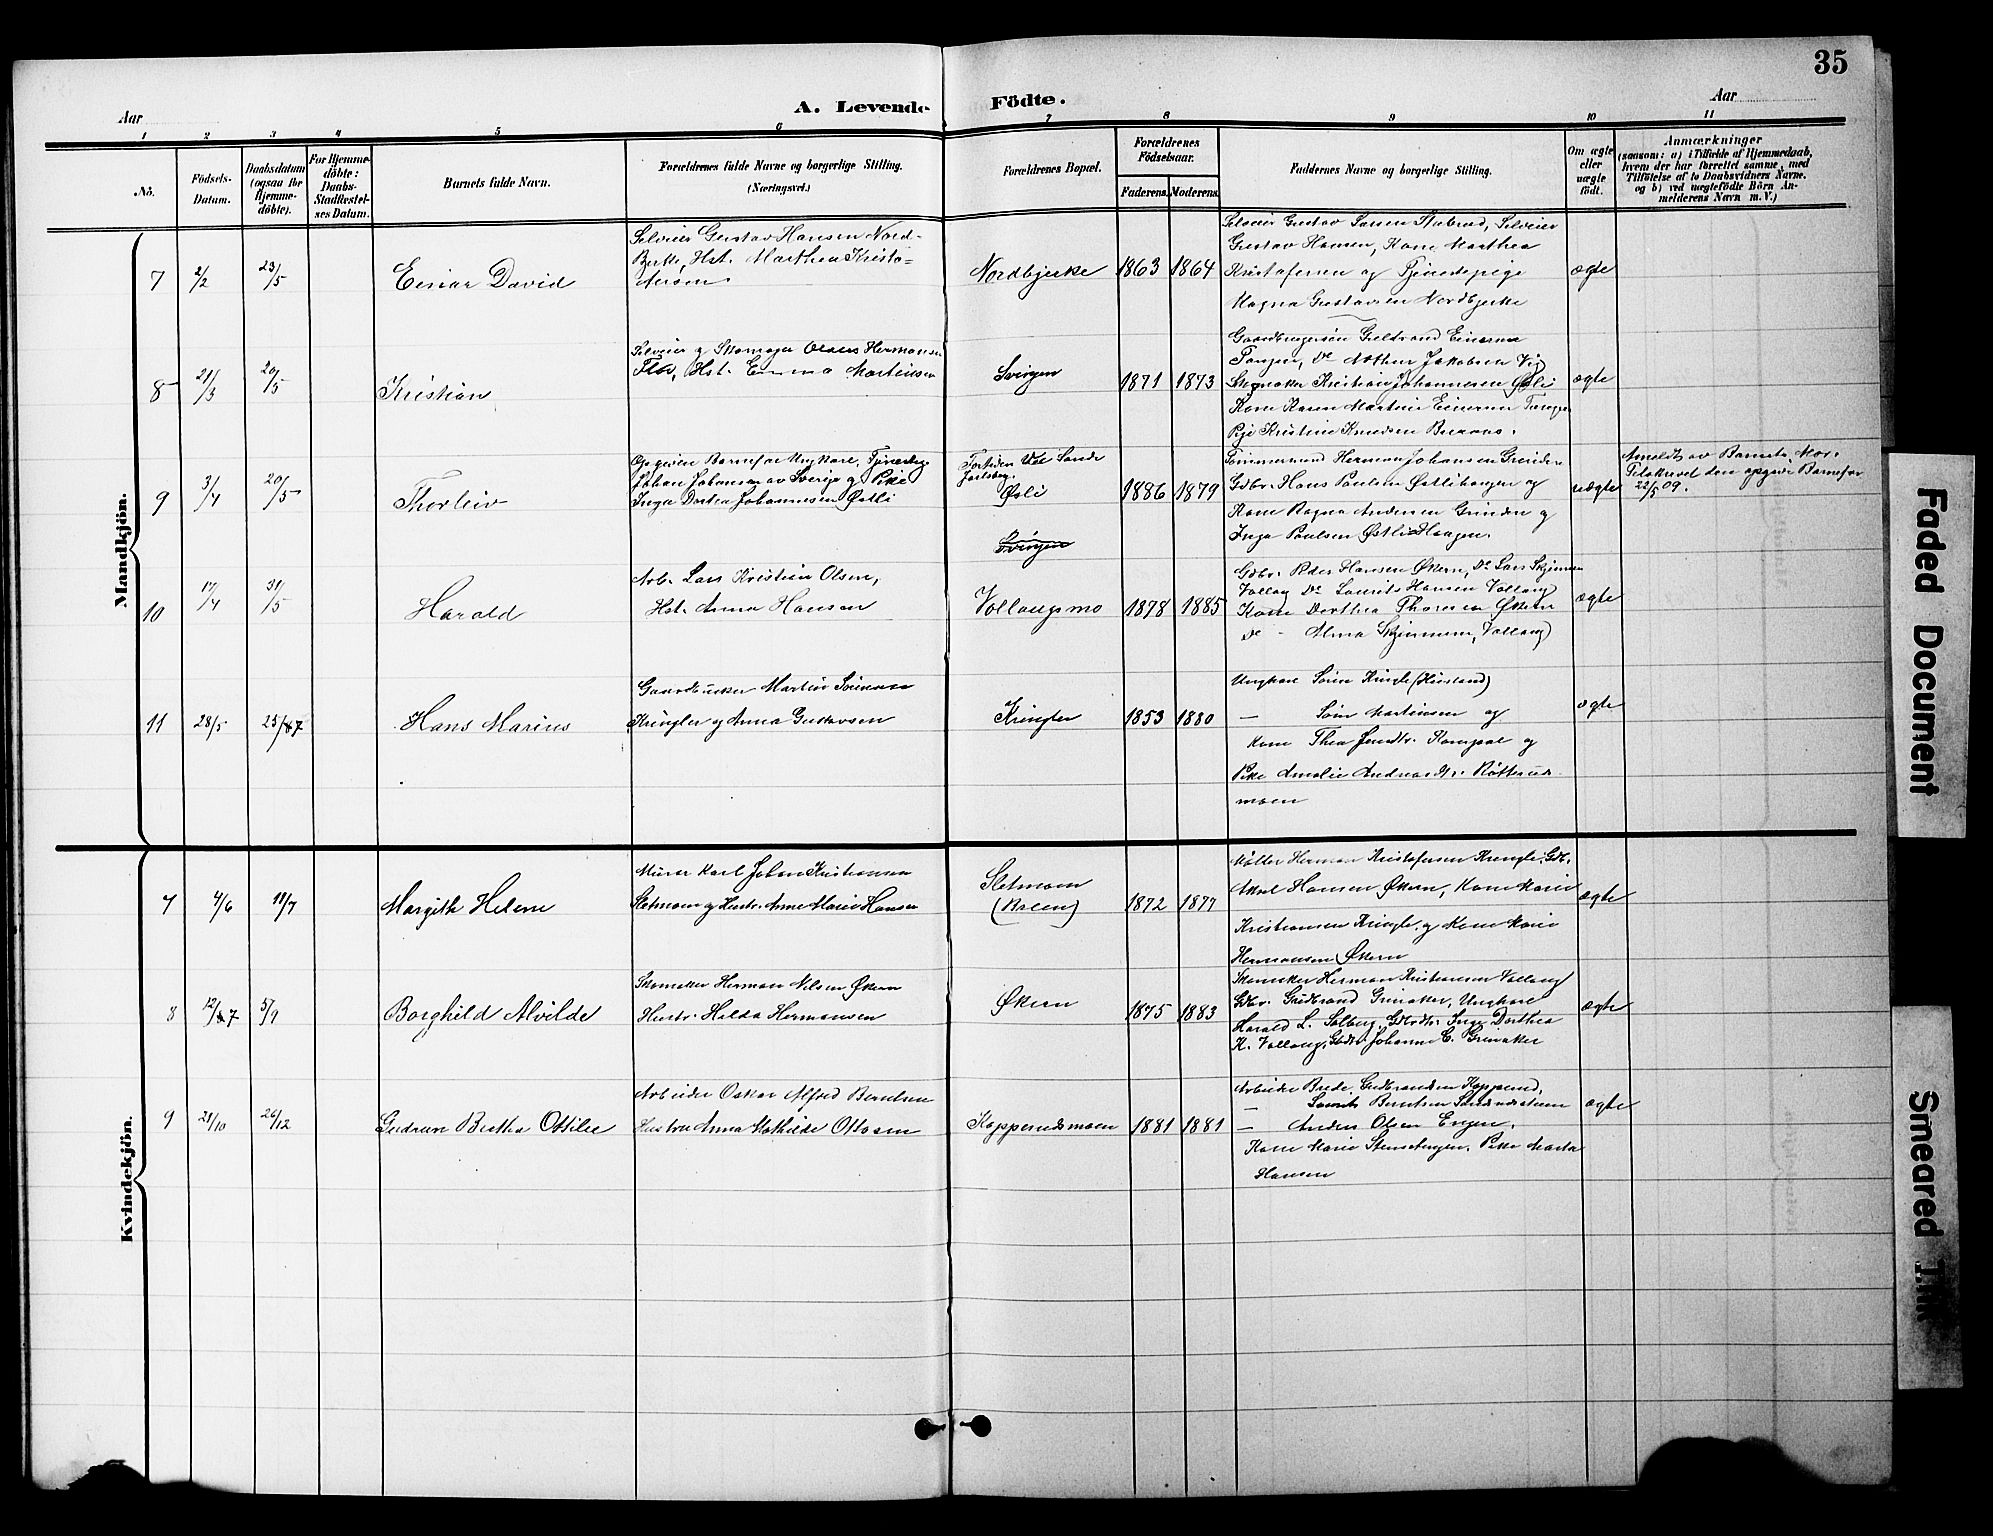 35
A. Levende Födte.
Aar
Aar
1 2 3 4 5 6 7 8 9 10 11
No.
Födsels-Datum.
Daabsdatum (ogsaa for Hjemme-döbte).
For Hjemme-döbte: Daabs-Stadfæstel-ses Datum.
Barnets fulde Navn.
Forældrenes fulde Navne og borgerlige Stilling.
(Næringsvei.)
Forældrenes Bopæl.
Forældrenes Födselsaar.
Faderens. Moderens.
Faddernes Navne og borgerlige Stilling.
Om ægte eller uægte födt.
Anmærkninger
(saasom: a) i Tilfælde af Hjemmedaab,
hvem der har forrettet samme, med
Tilföielse af to Daabsvidners Navne.
og b) ved uægtefödte Börn An-
melderens Navn m. V.)
Mandkjön.
7 2/2 23/5 Einar David
Selveier Gustav Hansen Nord-
Bjerke, Hst. Marthea Kristo-
fersen
Nordbjerke 1863 1864
Selveier Gustav Larsen Stubrud, Selveier
Gustav Hansen, Kone Marthea
Kristofersen og Tjenestepige
Magna Gustavsen Nordbjerke
ægte
8 21/3 20/5 Kristian
Selveier og Skomager Olaus Hermansen
Flor, Hst. Emma Martinsen
Svingen 1871 1873
Gudbrand Einersen
Tangen, Do Arthur Jakobsen Vig
Skomaker Kristian Johannesen Østli
Kone Karen Martine Einersen Tangen
Pige Kristine Knudsen
ægte
9 3/4 20/5 Thorleiv
Opgiven Barnefar Ungkarl, Tjenestedr.
Johan Johansen av Sverige og Pike
Inga Dortea Johannesen Østli
Fortiden Sande
Jarlsberg.
Østli
1886 1879
Tømmermand Herman Johansen Grinder
Gdbr. Hans Paulsen Østlihaugen og
Kone Ragna Andersen Grinder og
Inga Paulsen Østlie Haugen.
uægte
Anmeldt av Barnets Mor.
Tilskrevet den opgivne Barnefar
22/5 09.
Svingen
10 17/4 31/5 Harald
Arb. Lars Kristian Olsen,
Hst. Anna Hansen
Vollaugsmo 1878 1885
Gdbr. Peder Hansen Økern, Do Lars Skjennem
Vollaug Do Laurits Hansen Vollaug
Kone Dorthea Thoresen Økern
Do - Alma Skjennem, Vollaug)
ægte
11 28/5 25/7 Hans Marius
Gaardbruker Martin Sørensen
Kringler og Anna Gustavsen
Kringler 1853 1880
Ungkarl Søren Kringle (Husland)
— Søren Martinsen og
Kone Thea og
Pike Amalie Røtterud-
moen
ægte
Kvindekjön.
7 4/6 18/7 Margith Helene
Murer Karl Johan Kristiansen
Sletmoen og Hustr. Anne Marie Hansen
Sletmoen
(Braen)
1872 1877
Møller Herman Kristofersen Kringle, Gdb.
Axel Hansen Økern, Kone Marie
Kristiansen Kringle, og Kone Marie
Hermansen Økern
ægte
8 12/7 5/9 Borghild Alvilde
Skomaker Herman Nilsen Økern
Hustr. Hilda Hermansen
Økern 1875 1883
Skomaker Herman Kristiansen Vollaug
Gdbr. Gudbrand Grinaker, Ungkarl
Harald L. Solberg, Gdbrdtr. Inga Dorthea
K. Vollaug, Gbdtr Johanne E. Grinaker
ægte
9 21/10 26/12 Gudrun Bertha Ottilie
Arbeider Oskar Alfred Berntsen
Hustru Anna Mathilde Ottosen
Kopperudsmoen 1881 1881
Arbeider Brede Gudbrandsen Kopperud,
— Laurits Berntsen
— Anders Olsen Engen,
Kone Marie Stensbergen, Pike Marta
Hansen
ægte
Faded Document
Smeared Ink